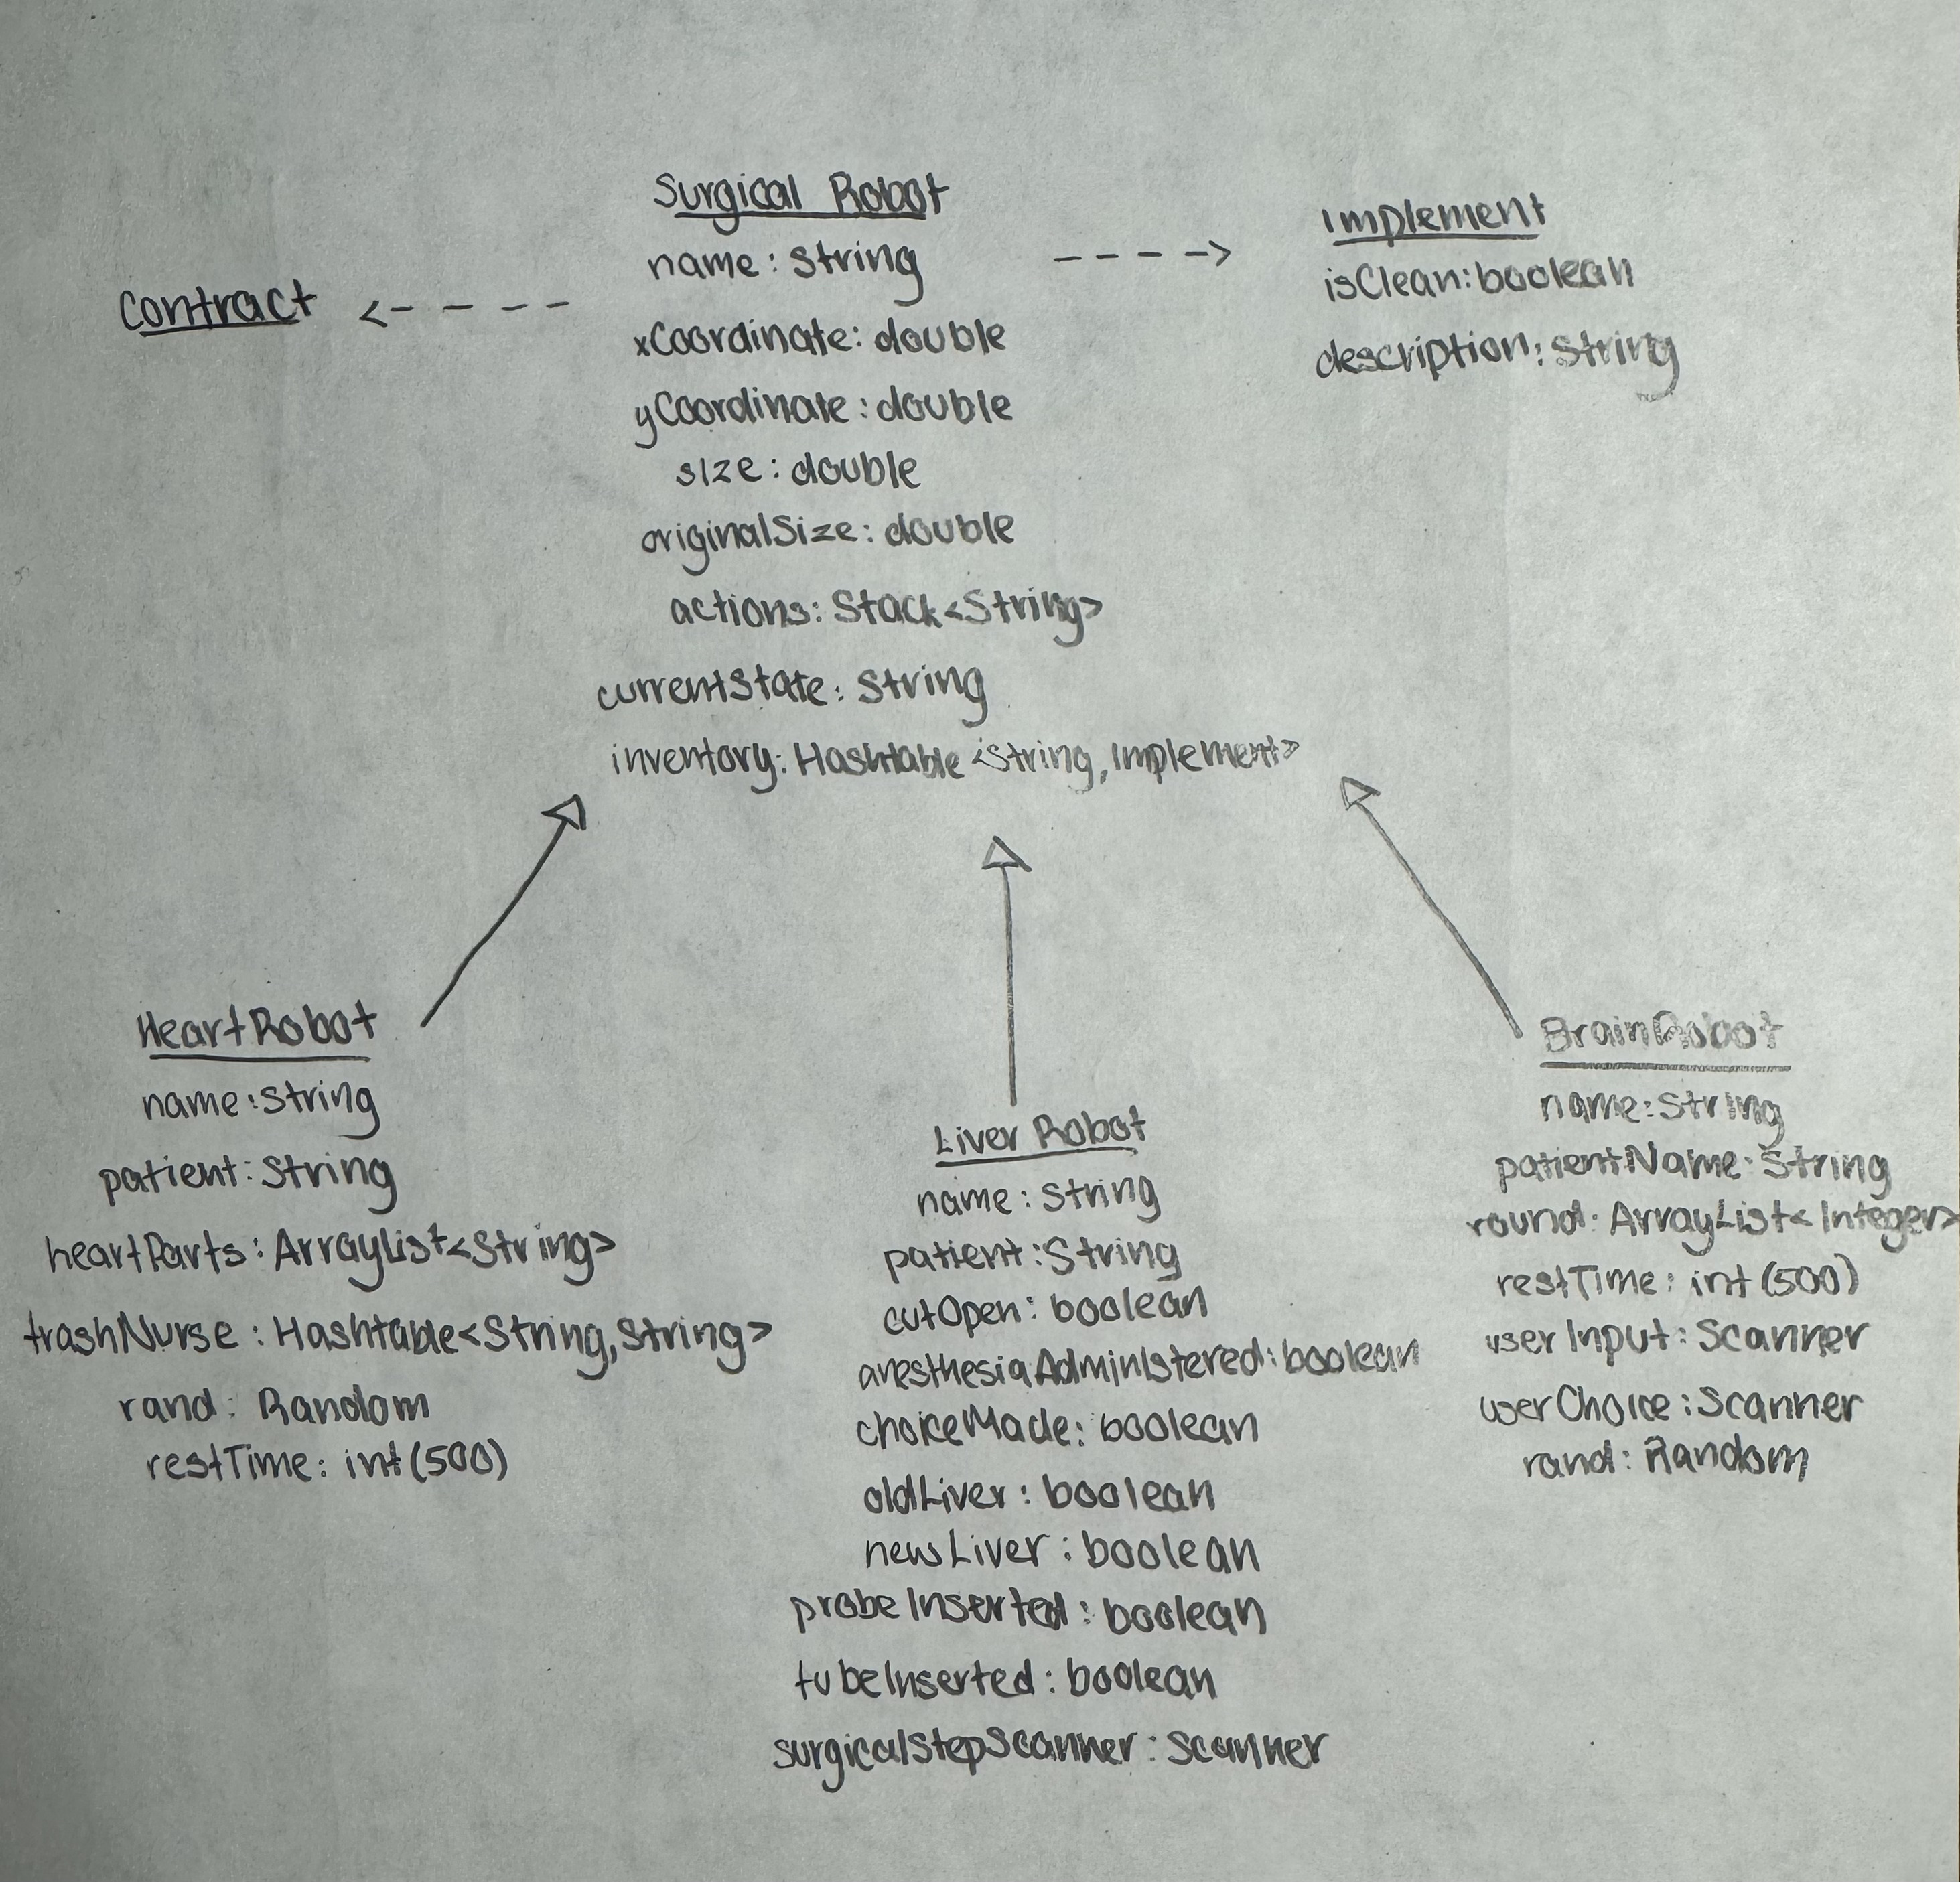 Surgical Robot
name: String
xCoordinate: double
yCoordinate: double
size: double
originalSize: double
actions: Stack<String>
currentState: String
inventory: Hashtable <String, Implement>
Contract
Implement
isClean: boolean
description: String
HeartRobot
name: String
patient: String
heartParts: ArrayList<String>
trashNurse: Hashtable<String, String>
rand: Random
restTime: int (500)
Liver Robot
name: String
patient: String
cutOpen: boolean
anesthesiaAdministered: boolean
choiceMade: boolean
oldLiver: boolean
newLiver: boolean
probeInserted: boolean
tubeInserted: boolean
surgicalStepScanner: Scanner
BrainRobot
name: String
patientName: String
round: ArrayList<Integer>
restTime: int (500)
userInput: Scanner
userChoice: Scanner
rand: Random